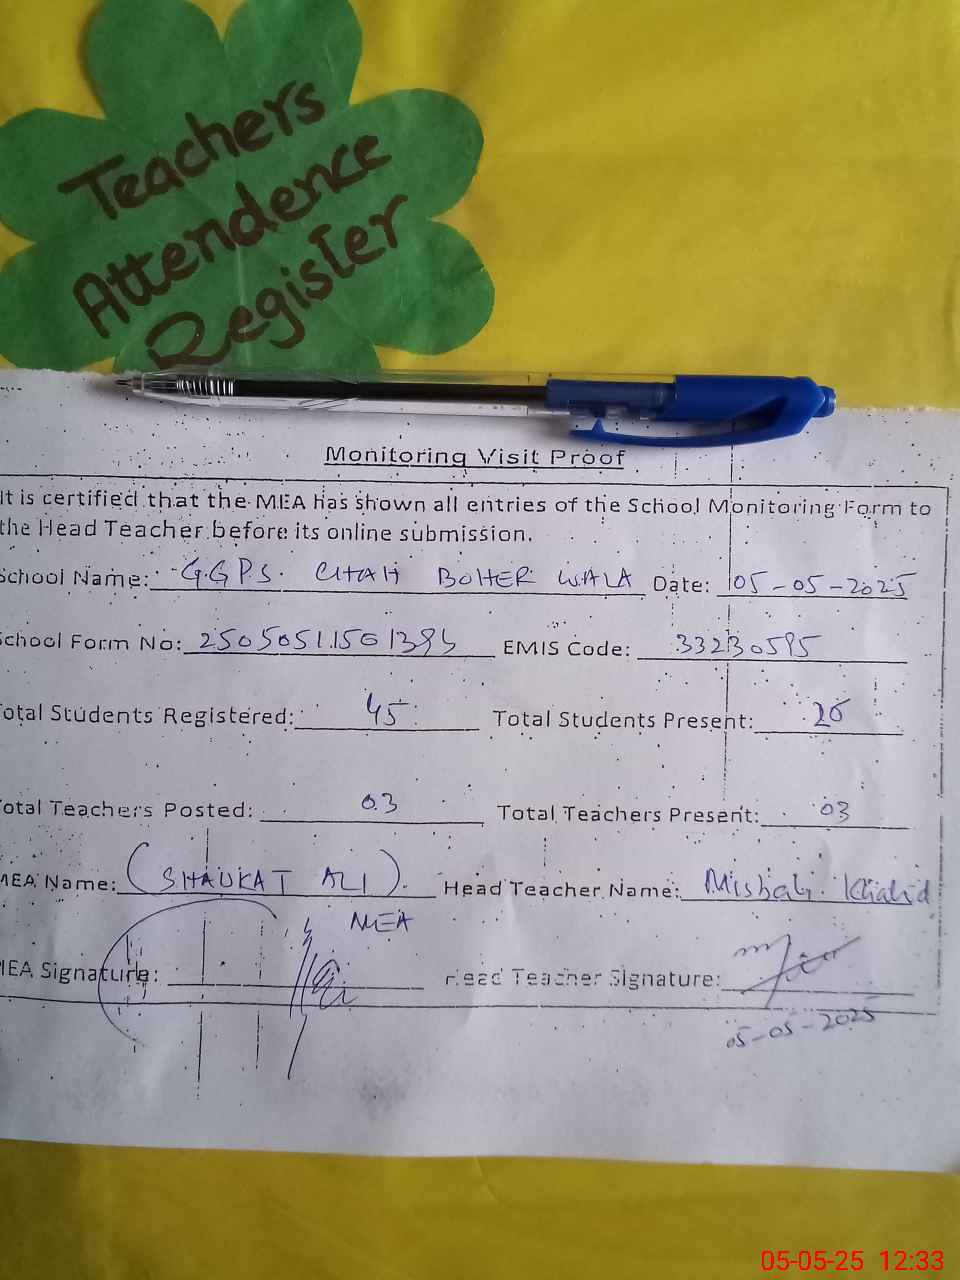 Teachers
Attendence
Register
Monitoring Visit Proof
It is certified that the MEA has shown all entries of the School Monitoring Form to
the Head Teacher before its online submission.
School Name: G.G.P.S. CHAH BOHER WALA Date: 05-05-2025
School Form No: EMIS Code: 33230595
Total Students Registered: 45 Total Students Present:
Total Teachers Posted: 03 Total Teachers Present: 03
MEA Name: (SHAUKAT ALI). Head Teacher Name: Misbah Khalid
MEA
MEA Signature: Head Teacher Signature:
05-05-2025
05-05-25 12:33